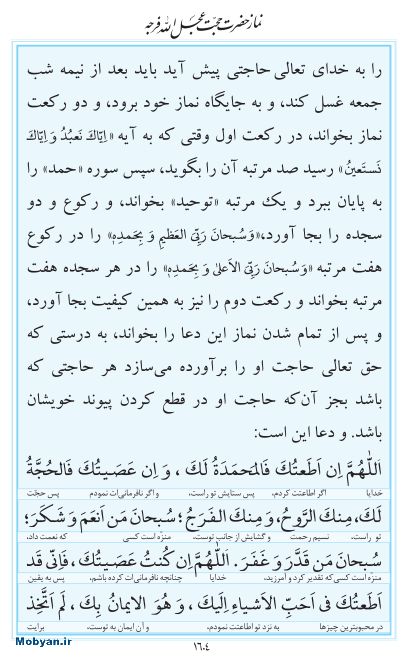 نماز حضرت حجت عجل الله فرجه
را به خدای تعالی حاجتی پیش آید باید بعد از نیمه شب
جمعه غسل کند، و به جایگاه نماز خود برود، و دو رکعت
نماز بخواند، در رکعت اول وقتی که به آیه «اِیّاکَ نَعبُدُ وَ اِیّاکَ
نَستَعینُ» رسید صد مرتبه آن را بگوید، سپس سوره «حمد» را
به پایان ببرد و یک مرتبه «توحید» بخواند، و رکوع و دو
سجده را بجا آورد، «وَ سُبحانَ رَبِّیَ العَظیمِ وَ بِحَمدِهِ» را در رکوع
هفت مرتبه «وَ سُبحانَ رَبِّیَ الاَعلیٰ وَ بِحَمدِهِ» را در هر سجده هفت
مرتبه بخواند و رکعت دوم را نیز به همین کیفیت بجا آورد،
و پس از تمام شدن نماز این دعا را بخواند، به درستی که
حق تعالی حاجت او را برآورده می‌سازد هر حاجتی که
باشد بجز آن‌که حاجت او در قطع کردن پیوند خویشان
باشد. و دعا این است:
اَللّٰهُمَّ اِن اَطَعتُکَ فَالمَحمَدَةُ لَکَ ، وَ اِن عَصَیتُکَ فَالحُجَّةُ
خدایا اگر اطاعتت کردم، پس ستایش تو راست، و اگر نافرمانی‌ات نمودم پس حجّت
لَکَ، مِنکَ الرَّوحُ، وَ مِنکَ الفَرَجُ؛ سُبحانَ مَن اَنعَمَ وَ شَکَرَ؛
تو راست، نسیم رحمت و گشایش از جانب توست، منزّه است کسی که نعمت داد،
سُبحانَ مَن قَدَّرَ وَ غَفَرَ. اَللّٰهُمَّ اِن کُنتُ عَصَیتُکَ، فَاِنّی قَد
منزّه است کسی که تقدیر کرد و آمرزید، خدایا چنانچه نافرمانی‌ات کرده باشم، پس به یقین
اَطَعتُکَ فی اَحَبِّ الاَشیاءِ اِلَیکَ ، وَ هُوَ الایمانُ بِکَ ، لَم اَتَّخِذ
در محبوبترین چیزها به نزد تو اطاعتت نمودم، و آن ایمان به توست، برایت
۱۶۰۴
Mobyan.ir